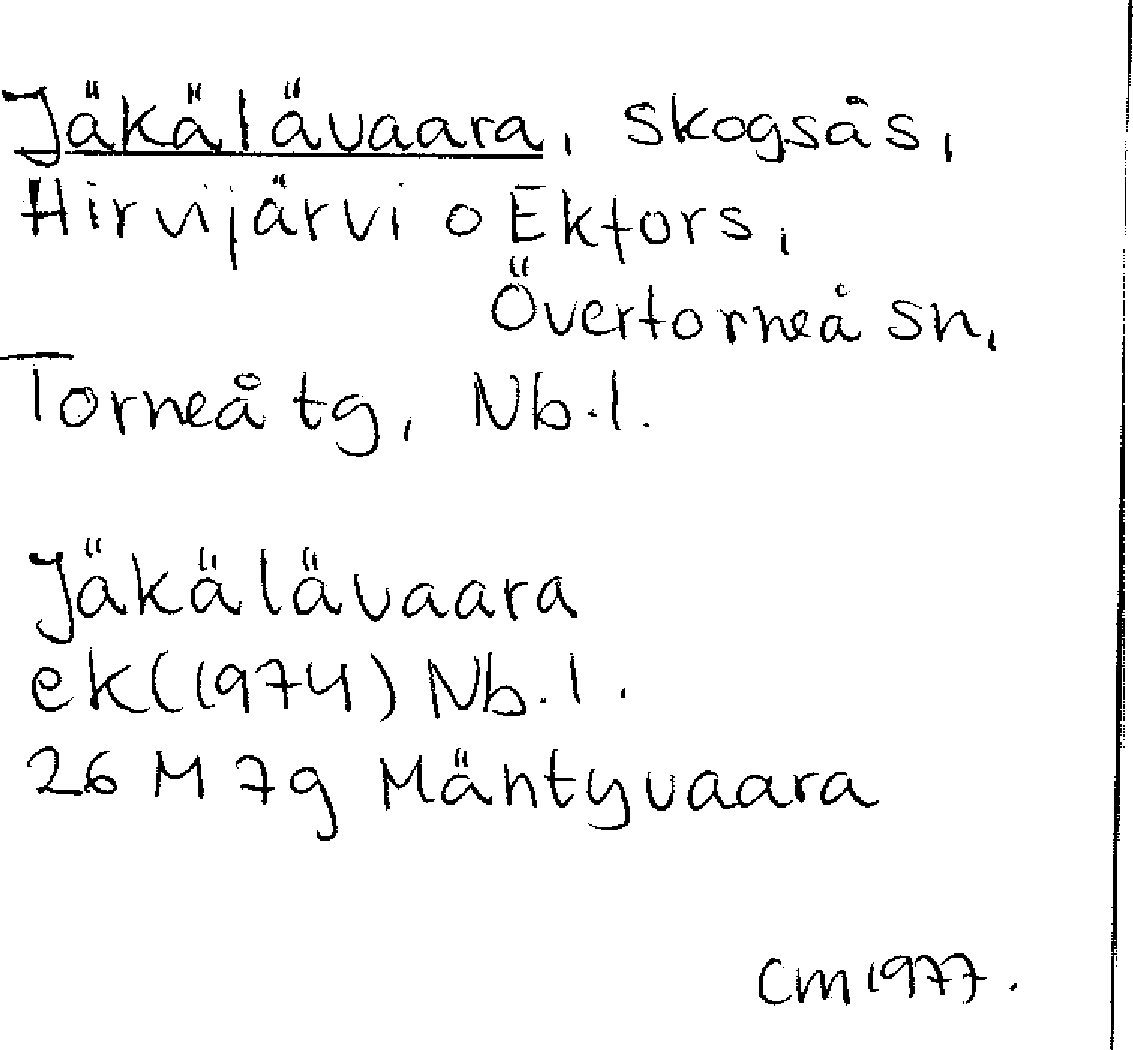 Jäkälävaara, skogsås,
Hirvijärvi o Ektors,
Övertorneå sn,
Torneå tg, Nb.l.
Jäkälävaara
ek (1974) Nb.l.
26 M 7g Mäntyvaara
CM 1977.